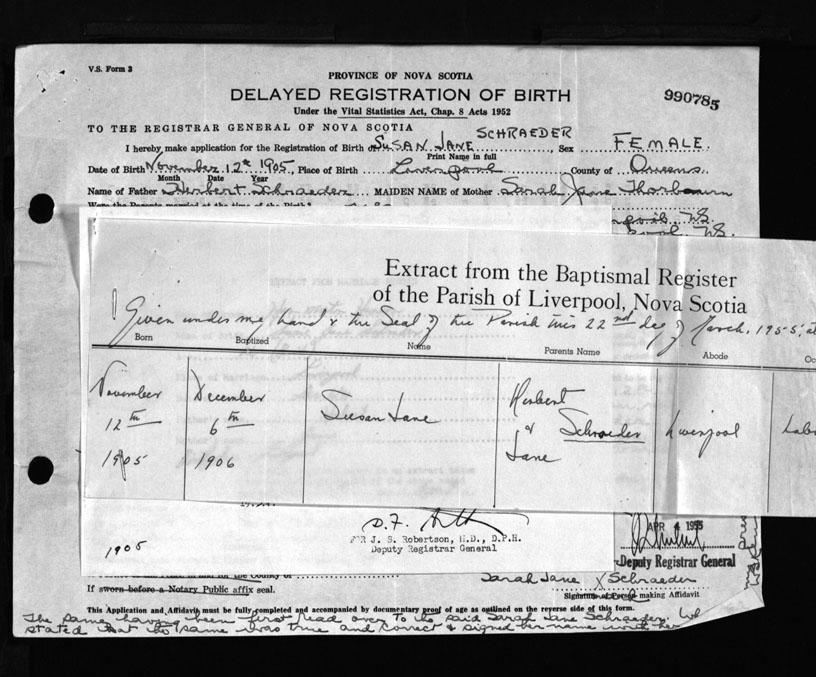 V.S. Form 3
PROVINCE OF NOVA SCOTIA
DELAYED REGISTRATION OF BIRTH
990785
Under the Vital Statistics Act, Chap. 8 Acts 1952
TO THE REGISTRAR GENERAL OF NOVA SCOTIA
SCHRAEDER
I hereby make application for the Registration of Birth of SUSAN JANE Sex FEMALE.
Print Name in full
Date of Birth November 12th 1905, Place of Birth Liverpool County of Queens
Month Date Year
Name of Father Herbert Schraeder MAIDEN NAME of Mother Sarah Jane Thorbourn
Were the Parents married at the time of the Birth?
N.S.
N.S.
Extract from the Baptismal Register
of the Parish of Liverpool, Nova Scotia
Given under my hand & the Seal of the Parish this 22nd day of March, 1955, at
Born Baptized Name Parents Name Abode
November December Susan Jane Herbert
12th 6th & Schraeder Liverpool
1905 1906 Jane
D.F.
FOR J. S. Robertson, M.D., D.P.H.
Deputy Registrar General
1905
APR 4 1955
Deputy Registrar General
Sarah Jane X Schraeder
If sworn before a Notary Public affix seal.
Signature of Person making Affidavit
This Application and Affidavit must be fully completed and accompanied by documentary proof of age as outlined on the reverse side of this form.
The same having been first read over to the said Sarah Jane Schraeder, who
stated that the same was true and correct & signed her name with her